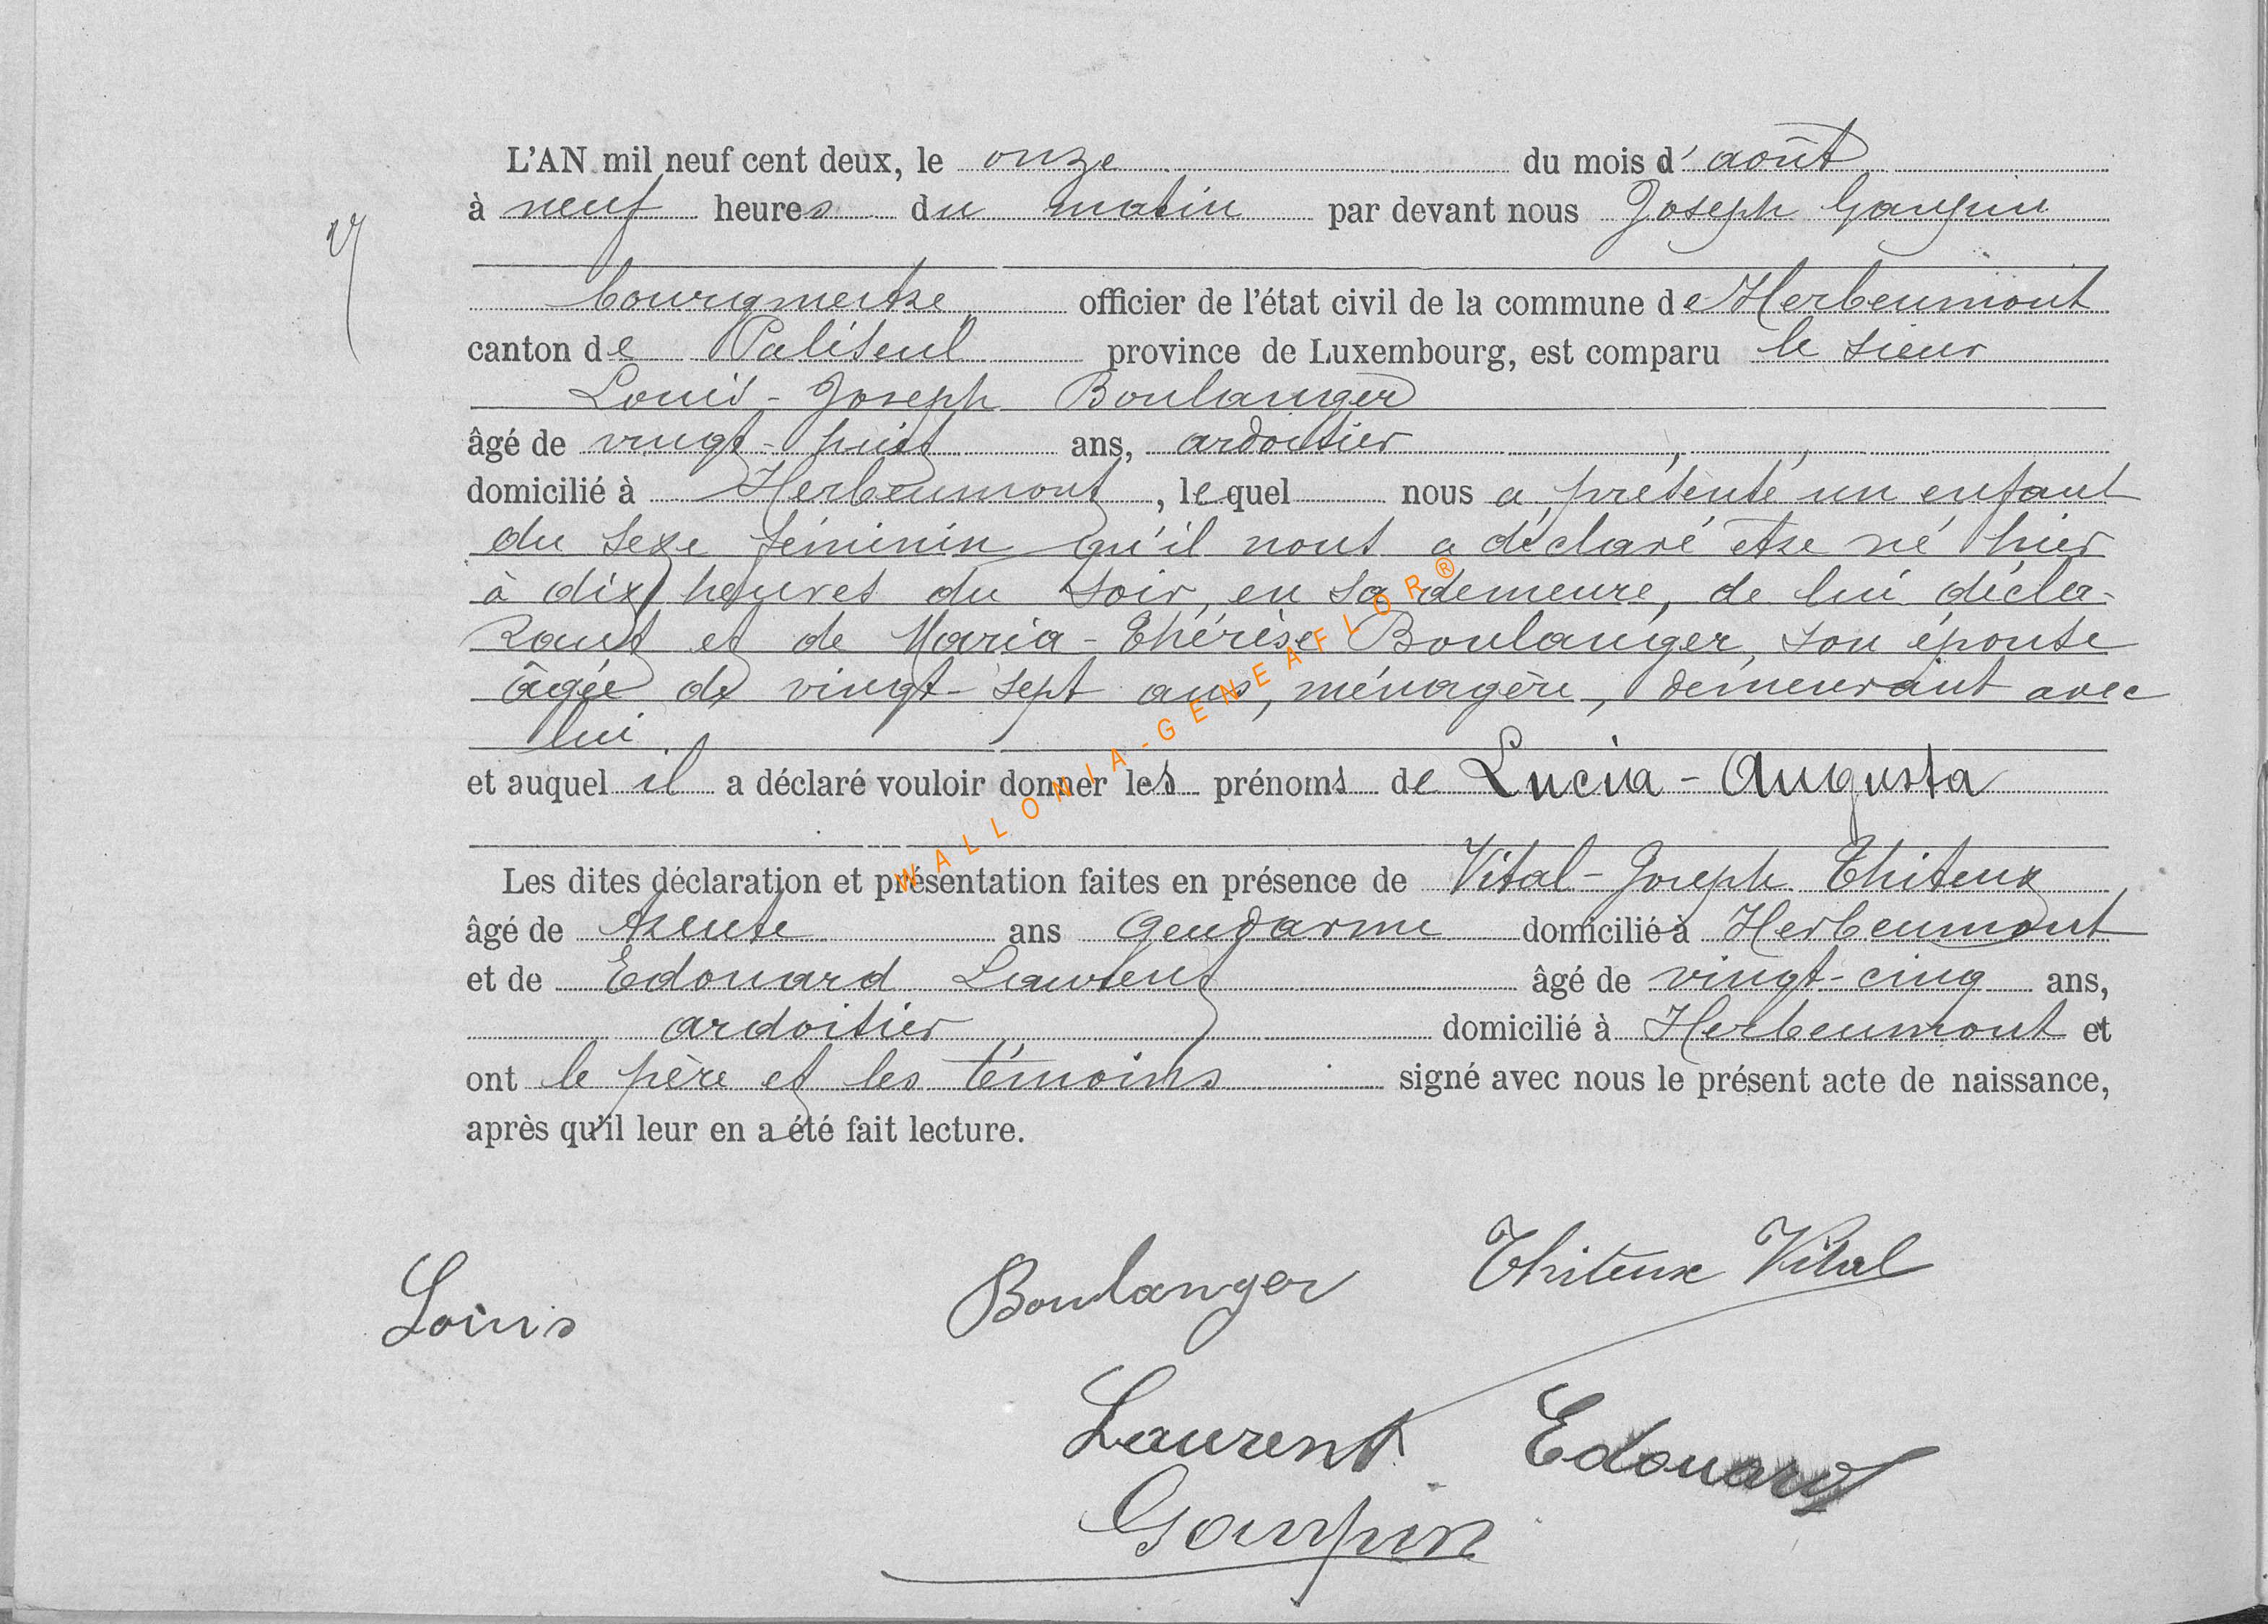 L'AN mil neuf cent deux, le onze du mois d'août
à neuf heures du matin par devant nous Joseph Gaupin
bourgmestre officier de l'état civil de la commune de Herbeumont
canton de Paliseul province de Luxembourg, est comparu le sieur
Louis-Joseph Boulanger
âgé de vingt-huit ans, ardoisier
domicilié à Herbeumont, lequel nous a présenté un enfant
du sexe féminin qu'il nous a déclaré être né hier
à dix heures du soir, en sa demeure, de lui décla-
rant et de Maria-Thérèse Boulanger, son épouse
âgée de vingt-sept ans, ménagère, demeurant avec
lui.
et auquel il a déclaré vouloir donner les prénoms de Lucia-Augusta
Les dites déclaration et présentation faites en présence de Vital-Joseph Thiteux
âgé de trente ans gendarme domicilié à Herbeumont
et de Edouard Laurent âgé de vingt-cinq ans,
ardoisier domicilié à Herbeumont et
ont le père et les témoins signé avec nous le présent acte de naissance,
après qu'il leur en a été fait lecture.
Louis Boulanger Thiteux Vital
Laurent Edouard
Gaupin
WALLONIA-GENEAFLOR®